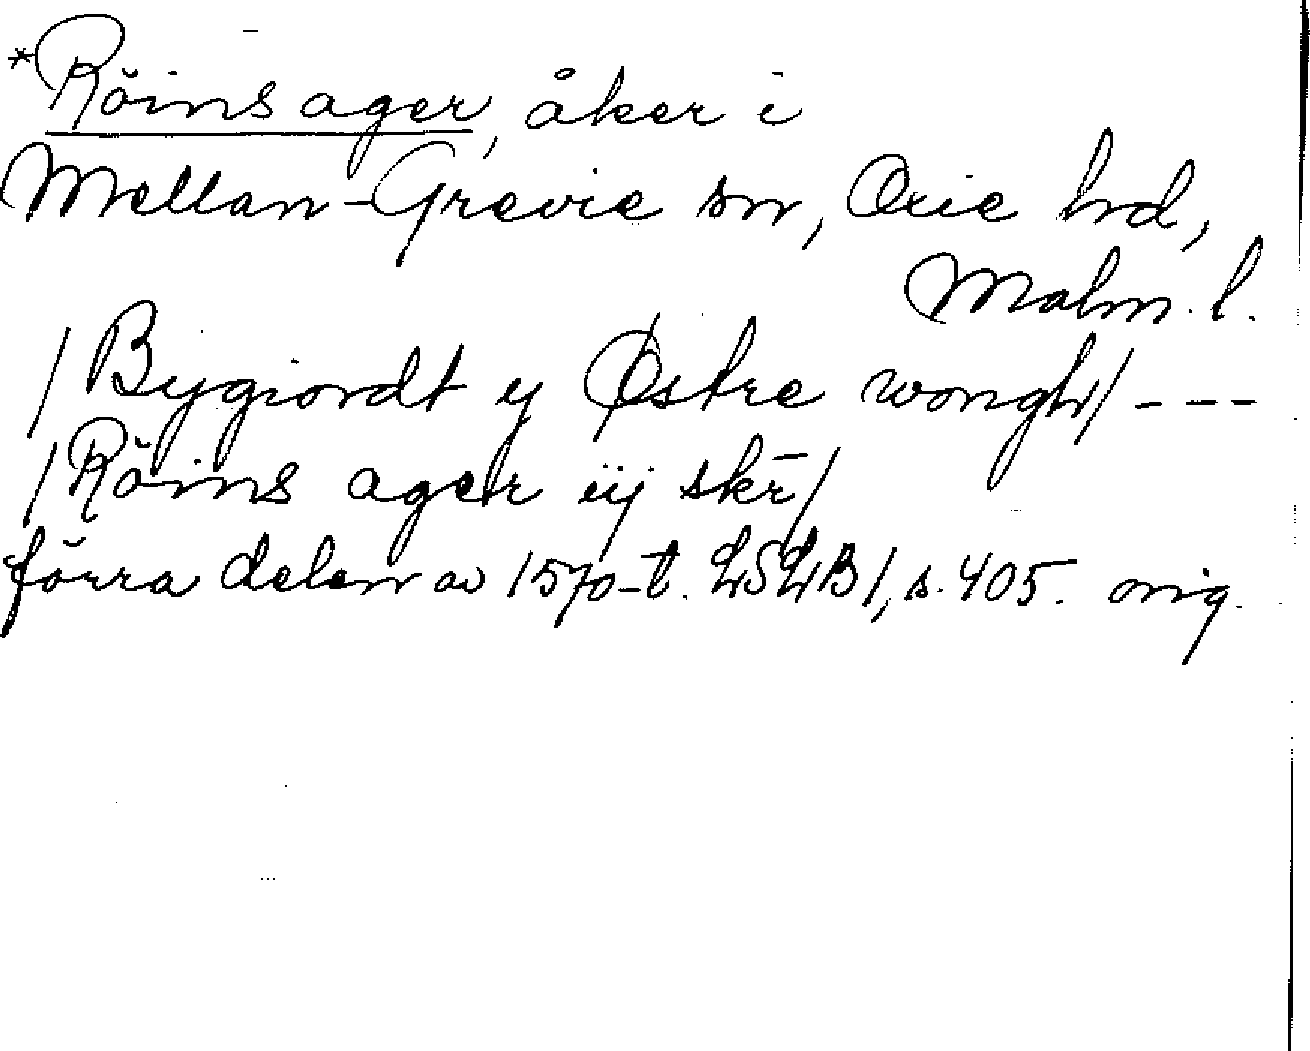 *Röins ager, åker i
Mellan-Grevie sn, Oxie hd,
Malm. l.
/Bygiordt y Østre wongh/ ---
/Röins ager iij skr̄/
förra delen av 1570-t. LSLB1, s. 405. orig.